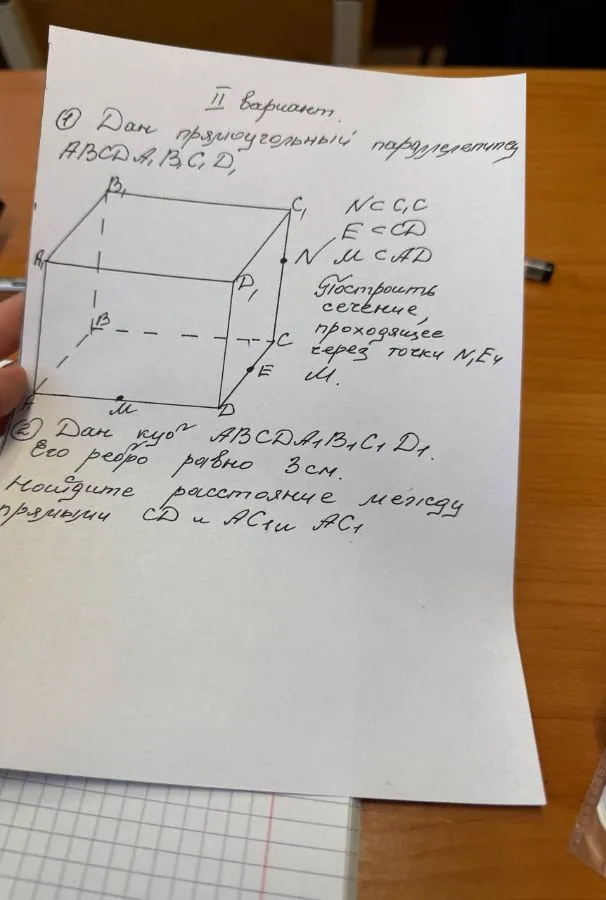 II вариант.
① Дан прямоугольный параллелепипед
ABCDA₁B₁C₁D₁
B₁
C₁
A₁
D₁
N
B
C
E
A
M
D
N ⊂ C₁C
E ⊂ CD
M ⊂ AD
Построить
сечение,
проходящее
через точки N, E и
M.
② Дан куб ABCDA₁B₁C₁D₁.
Его ребро равно 3 см.
Найдите расстояние между
прямыми CD и AC₁ и AC₁